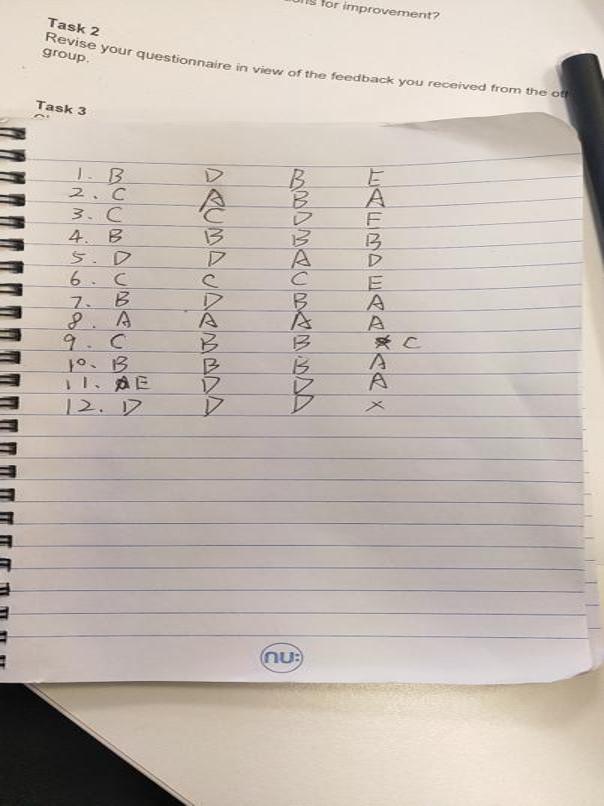 for improvement?
Task 2
Revise your questionnaire in view of the feedback you received from the
group.
Task 3
1. B D B E
2. C A B A
3. C C D E
4. B B B B
5. D D A D
6. C C C E
7. B D B A
8. A A A A
9. C B B C
10. B B B A
11. E D D A
12. D D D x
nu: